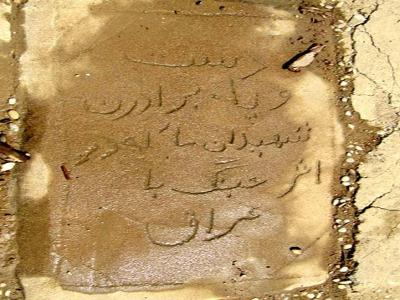 دست
و پا برادرن
شهیدان ما که در
اثر جنگ با
عراق